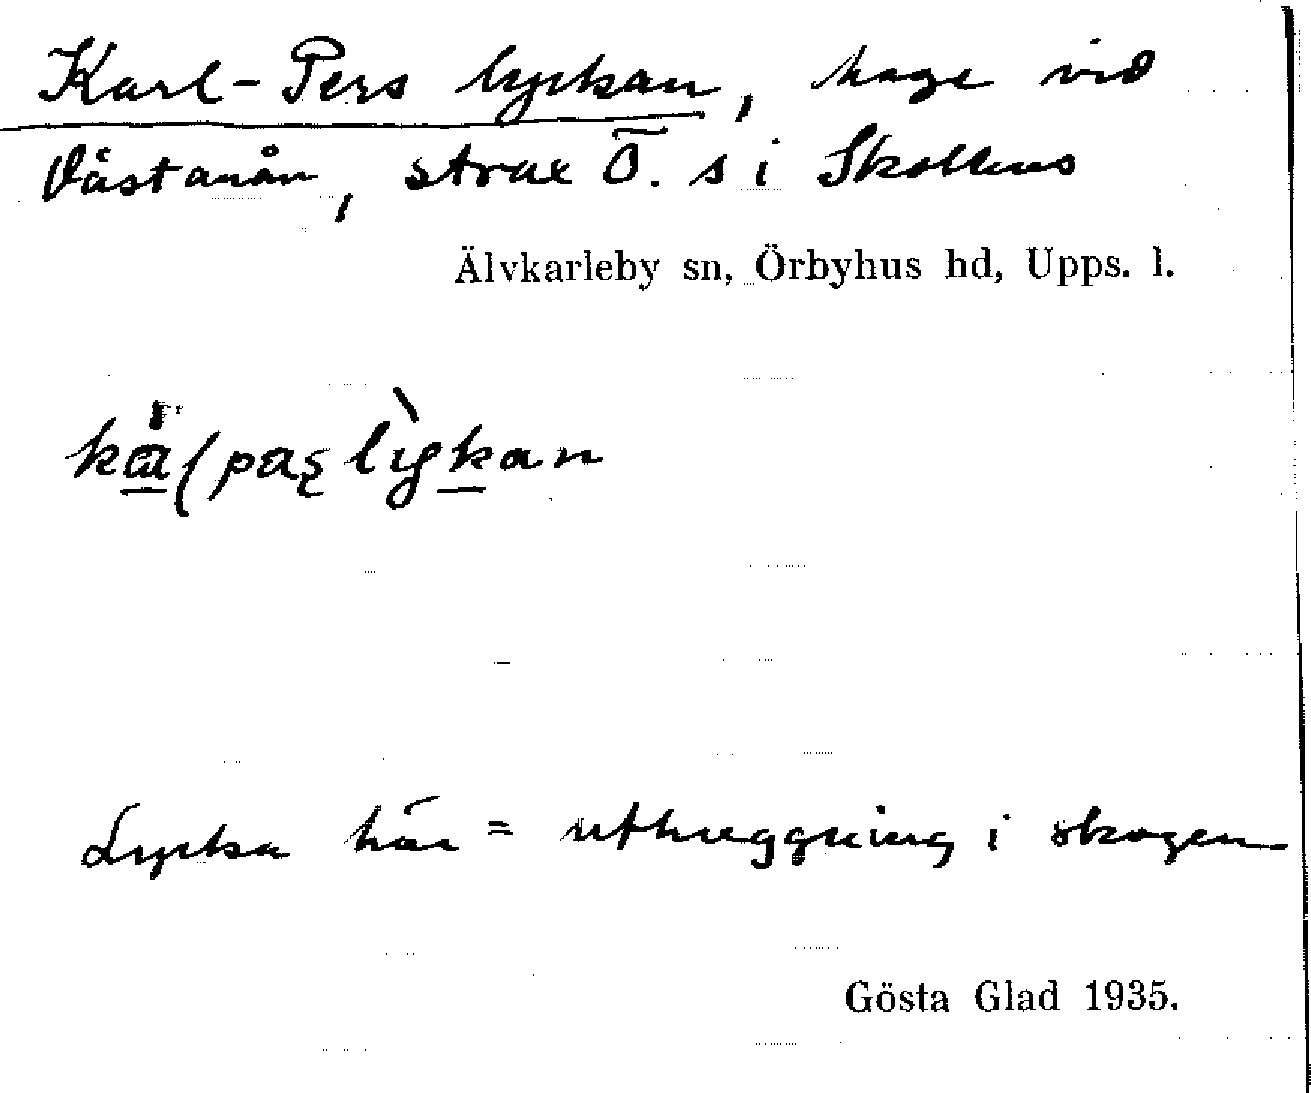 Karl-Pers lyckan, hage vid
Västanån, strax Ö. s i Skollens
Älvkarleby sn, Örbyhus hd, Upps. l.
Lycka här = uthuggning i skogen
Gösta Glad 1935.